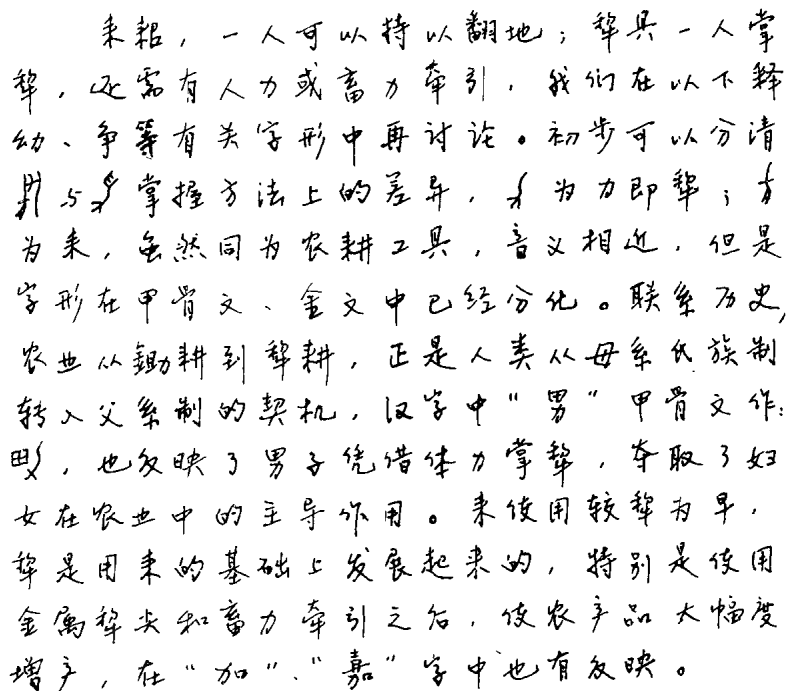 耒耜，一人可以持以翻地；犁具一人掌
犁，还需有人力或畜力牵引，我们在以下释
幼、争等有关字形中再讨论。初步可以分清
与掌握方法上的差异，为力即犁；
为耒，虽然同为农耕工具，音义相近，但是
字形在甲骨文、金文中已经分化。联系历史，
农业从锄耕到犁耕，正是人类从母系氏族制
转入父系制的契机，汉字中“男”甲骨文作：
，也反映了男子凭借体力掌犁，夺取了妇
女在农业中的主导作用。耒使用较犁为早，
犁是用耒的基础上发展起来的，特别是使用
金属犁尖和畜力牵引之后，使农产品大幅度
增产，在“加”、“嘉”字中也有反映。